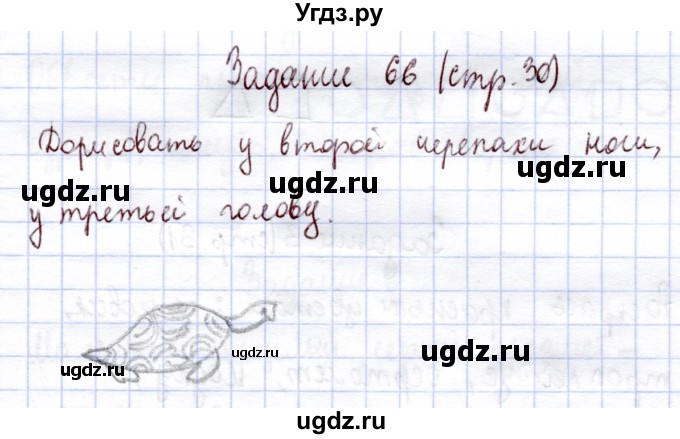 Угдз.ру
Задание 66 (стр. 30)
Дорисовать у второй черепахи ноги,
ugdz.ru ugdz.ru
у третьей голову.
ugdz.ru
ugdz.ru
ugdz.ru
ugdz.ru
ugdz.ru